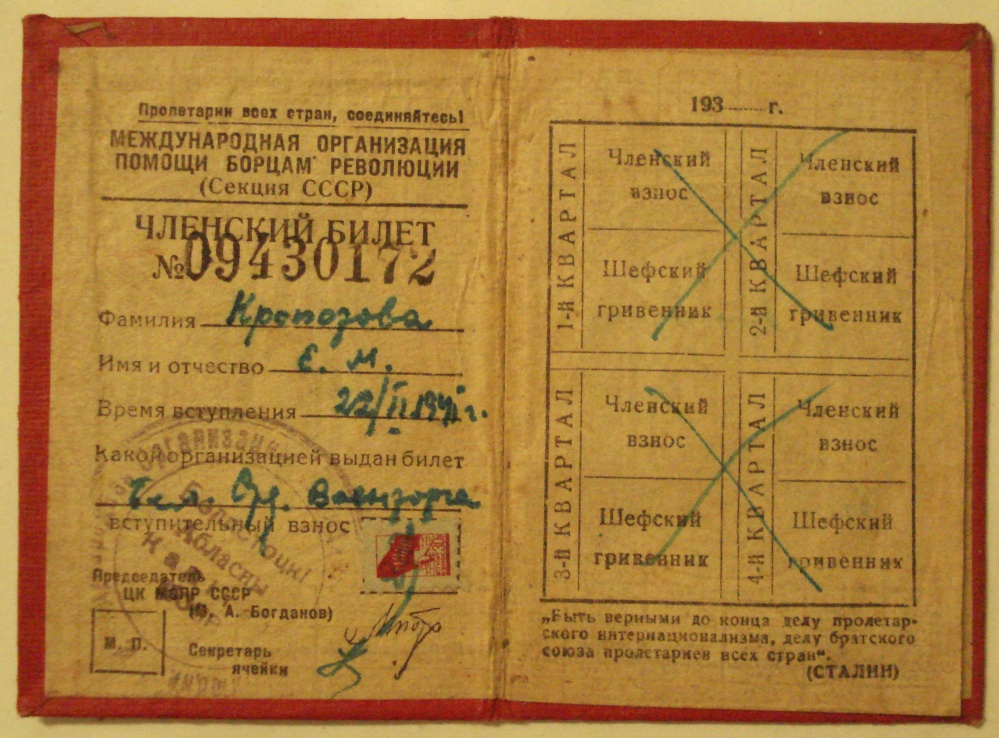 Пролетарии всех стран, соединяйтесь!
МЕЖДУНАРОДНАЯ ОРГАНИЗАЦИЯ
ПОМОЩИ БОРЦАМ РЕВОЛЮЦИИ
(Секция СССР)
ЧЛЕНСКИЙ БИЛЕТ
№ 09430172
Фамилия Кропозова
Имя и отчество Е. М.
Время вступления 22/II 1941 г.
Какой организацией выдан билет
Бел. Военторга
вступительный взнос
Председатель
ЦК МОПР СССР
(П. А. Богданов)
М. П.
Секретарь
ячейки
193 г.
1-й КВАРТАЛ
Членский
взнос
Шефский
гривенник
2-й КВАРТАЛ
Членский
взнос
Шефский
гривенник
3-й КВАРТАЛ
Членский
взнос
Шефский
гривенник
4-й КВАРТАЛ
Членский
взнос
Шефский
гривенник
„Быть верными до конца делу пролетар-
ского интернационализма, делу братского
союза пролетариев всех стран“.
(СТАЛИН)